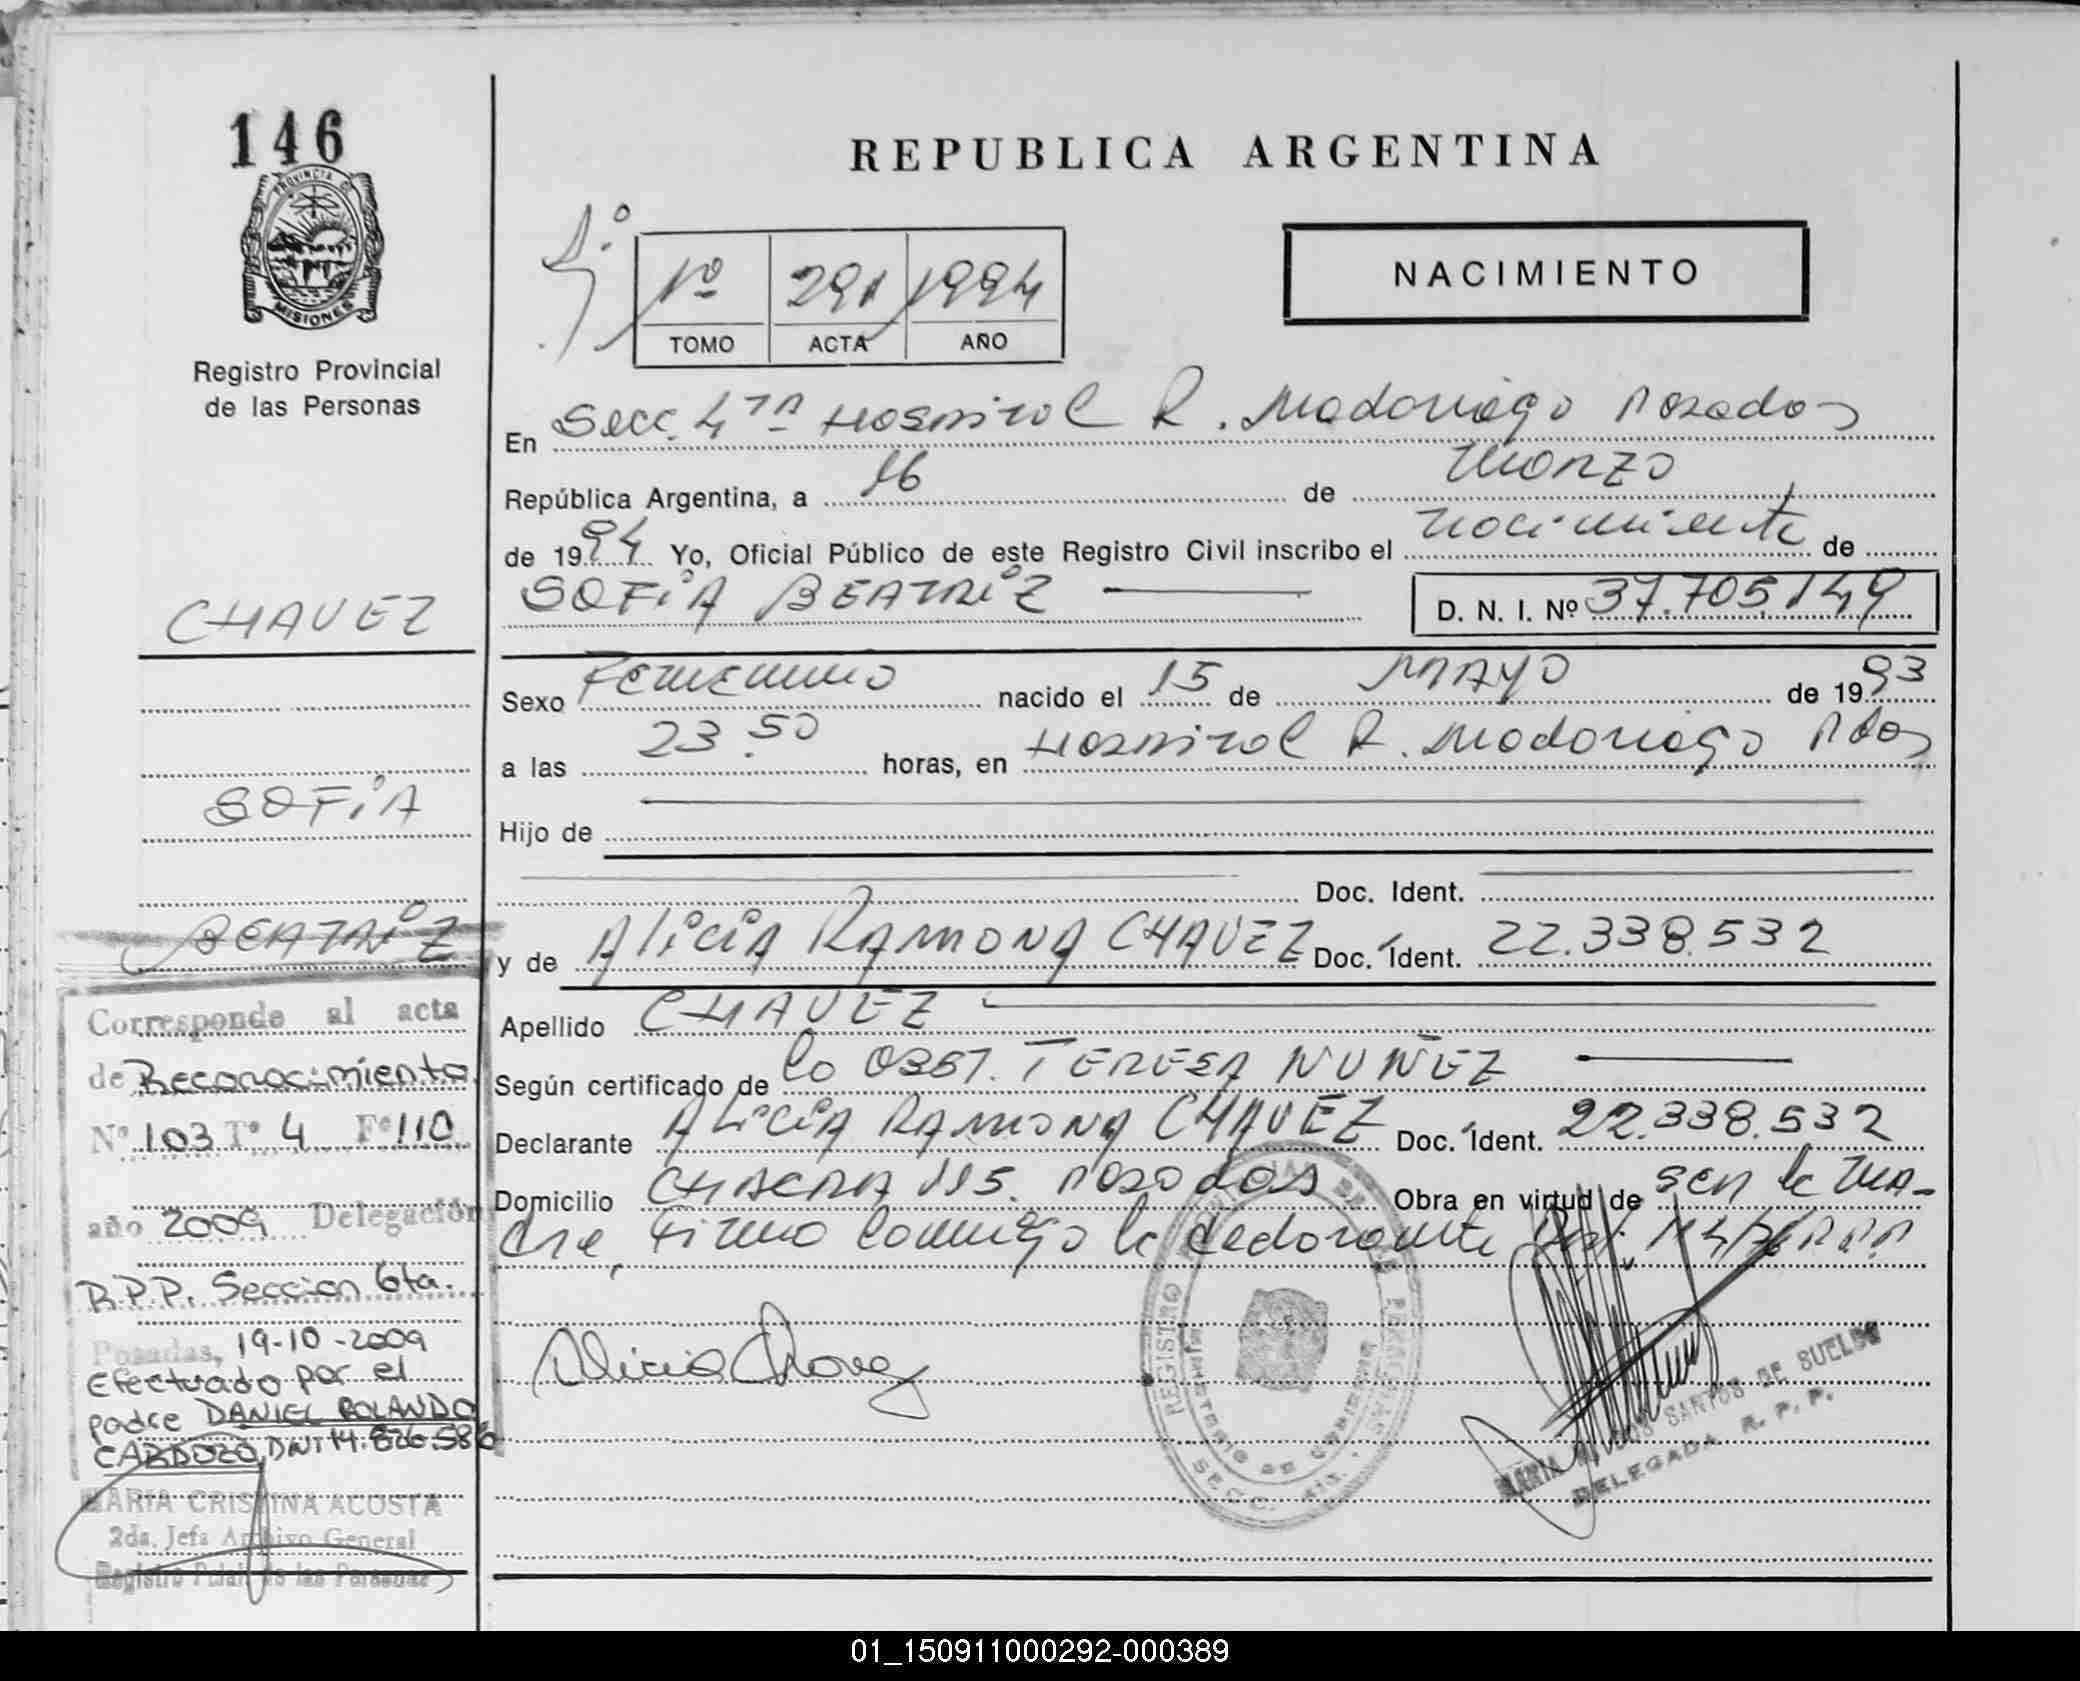 146
PROVINCIA DE
MISIONES
Registro Provincial
de las Personas
REPUBLICA ARGENTINA
1º 291 1994
TOMO ACTA AÑO
NACIMIENTO
En Secc. 4ta Hospital R. Madariaga Posadas
República Argentina, a 16 de Marzo
de 1994 Yo, Oficial Público de este Registro Civil inscribo el nacimiento de
SOFIA BEATRIZ D. N. I. Nº 37.705.149
Sexo Femenino nacido el 15 de MAYO de 1993
a las 23.50 horas, en Hospital R. Madariaga Pdas
Hijo de
Doc. Ident.
y de ALICIA RAMONA CHAVEZ Doc. Ident. 22.338.532
Apellido CHAVEZ
Según certificado de la OBST. TERESA NUÑEZ
Declarante ALICIA RAMONA CHAVEZ Doc. Ident. 22.338.532
Domicilio CHACRA 115. Posadas Obra en virtud de ser la ma-
dre, Firma conmigo la declarante
Alicia Chavez
REGISTRO PROVINCIAL DE LAS PERSONAS
MINISTERIO DE GOBIERNO
SECC. 4ta.
MARIA SANTOS DE SUELDO
DELEGADA R. P. P.
CHAVEZ
SOFIA
BEATRIZ
Corresponde al acta
de Reconocimiento
Nº 103 Tº 4 Fº 110
año 2009 Delegación
R.P.P. Seccion 6ta.
Posadas, 19-10-2009
Efectuado por el
padre DANIEL ROLANDO
CARDOZO, DNI 14.826.586
MARIA CRISTINA ACOSTA
2da. Jefa Archivo General
Registro de las Personas
01_150911000292-000389